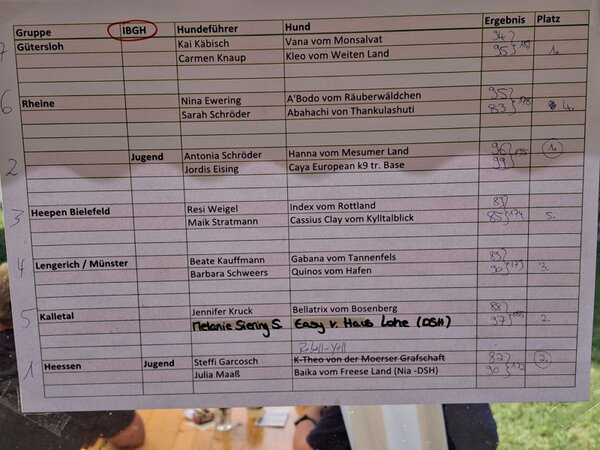 Gruppe IBGH Hundeführer Hund Ergebnis Platz
7 Gütersloh Kai Käbisch Vana vom Monsalvat 94
Carmen Knaup Kleo vom Weiten Land 95 189 1.
6 Rheine Nina Ewering A'Bodo vom Räuberwäldchen 95
Sarah Schröder Abahachi von Thankulashuti 83 178 4.
Jugend Antonia Schröder Hanna vom Mesumer Land 96 195 1.
2 Jordis Eising Caya European k9 tr. Base 99
Heepen Bielefeld Resi Weigel Index vom Rottland
3 Maik Stratmann Cassius Clay vom Kylltalblick 85 174 5.
Lengerich / Münster Beate Kauffmann Gabana vom Tannenfels
4 Barbara Schweers Quinos vom Hafen 90 3.
5 Jennifer Kruck Bellatrix vom Bosenberg 88
Kalletal Melanie Siering S. Easy v. Haus Lohe (DSH) 97 185 2.
Rebell-Yell
Heessen Jugend Steffi Garcosch K-Theo von der Moerser Grafschaft 82 2.
1 Julia Maaß Baika vom Freese Land (Nia -DSH) 90 172